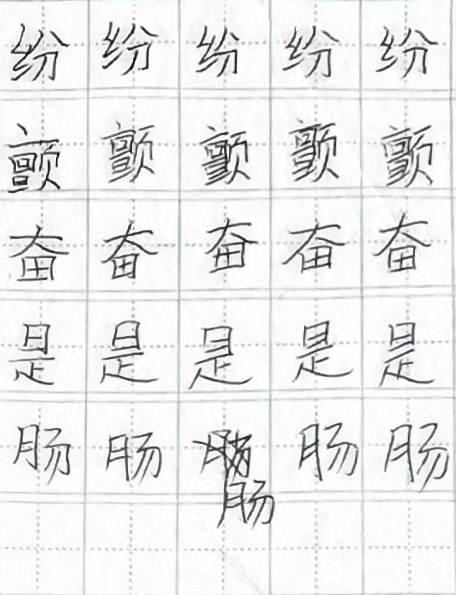 纷 纷 纷 纷 纷
颤 颤 颤 颤 颤
奋 奋 奋 奋 奋
是 是 是 是 是
肠 肠 肠 肠
肠